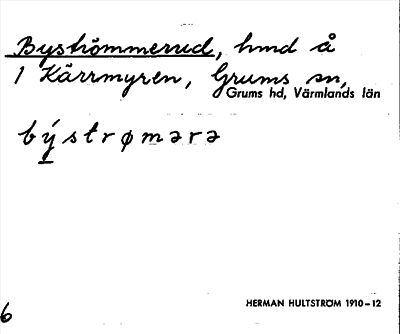 Byströmmerud, hmd å
1 Kärrmyren, Grums sn,
Grums hd, Värmlands län
býstrømərə
HERMAN HULTSTRÖM 1910-12
6